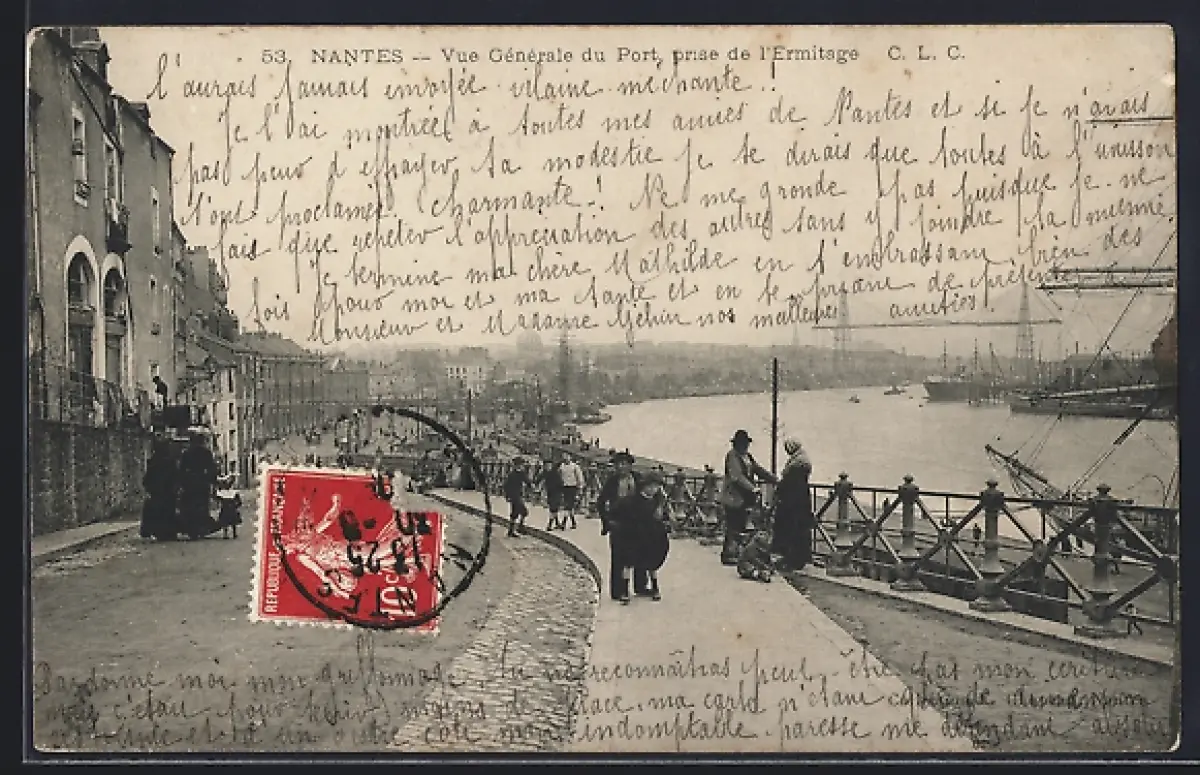 53. NANTES -- Vue Générale du Port, prise de l'Ermitage C. L. C.
l'aurais jamais envoyée vilaine méchante.!
Je l'ai montrée à toutes mes amies de Nantes et si je n'avais
pas peur d'effrayer ta modestie je te dirais que toutes à l'unisson
t'ont proclamée charmante! Ne me gronde pas puisque je ne
fais que répéter l'appréciation des autres sans y joindre la mienne.
Je termine ma chère Mathilde en t'embrassant bien des
fois pour moi et ma tante et en te priant de présenter
Monsieur et Madame nos meilleures amitiés.
REPUBLIQUE FRANÇAISE
10
13 25
Pardonne moi mon griffonnage, tu ne reconnaîtras peut-être pas mon écriture
mais c'était pour tenir moins de place, ma carte n'étant
et d'un autre côté mon indomptable paresse me défendant